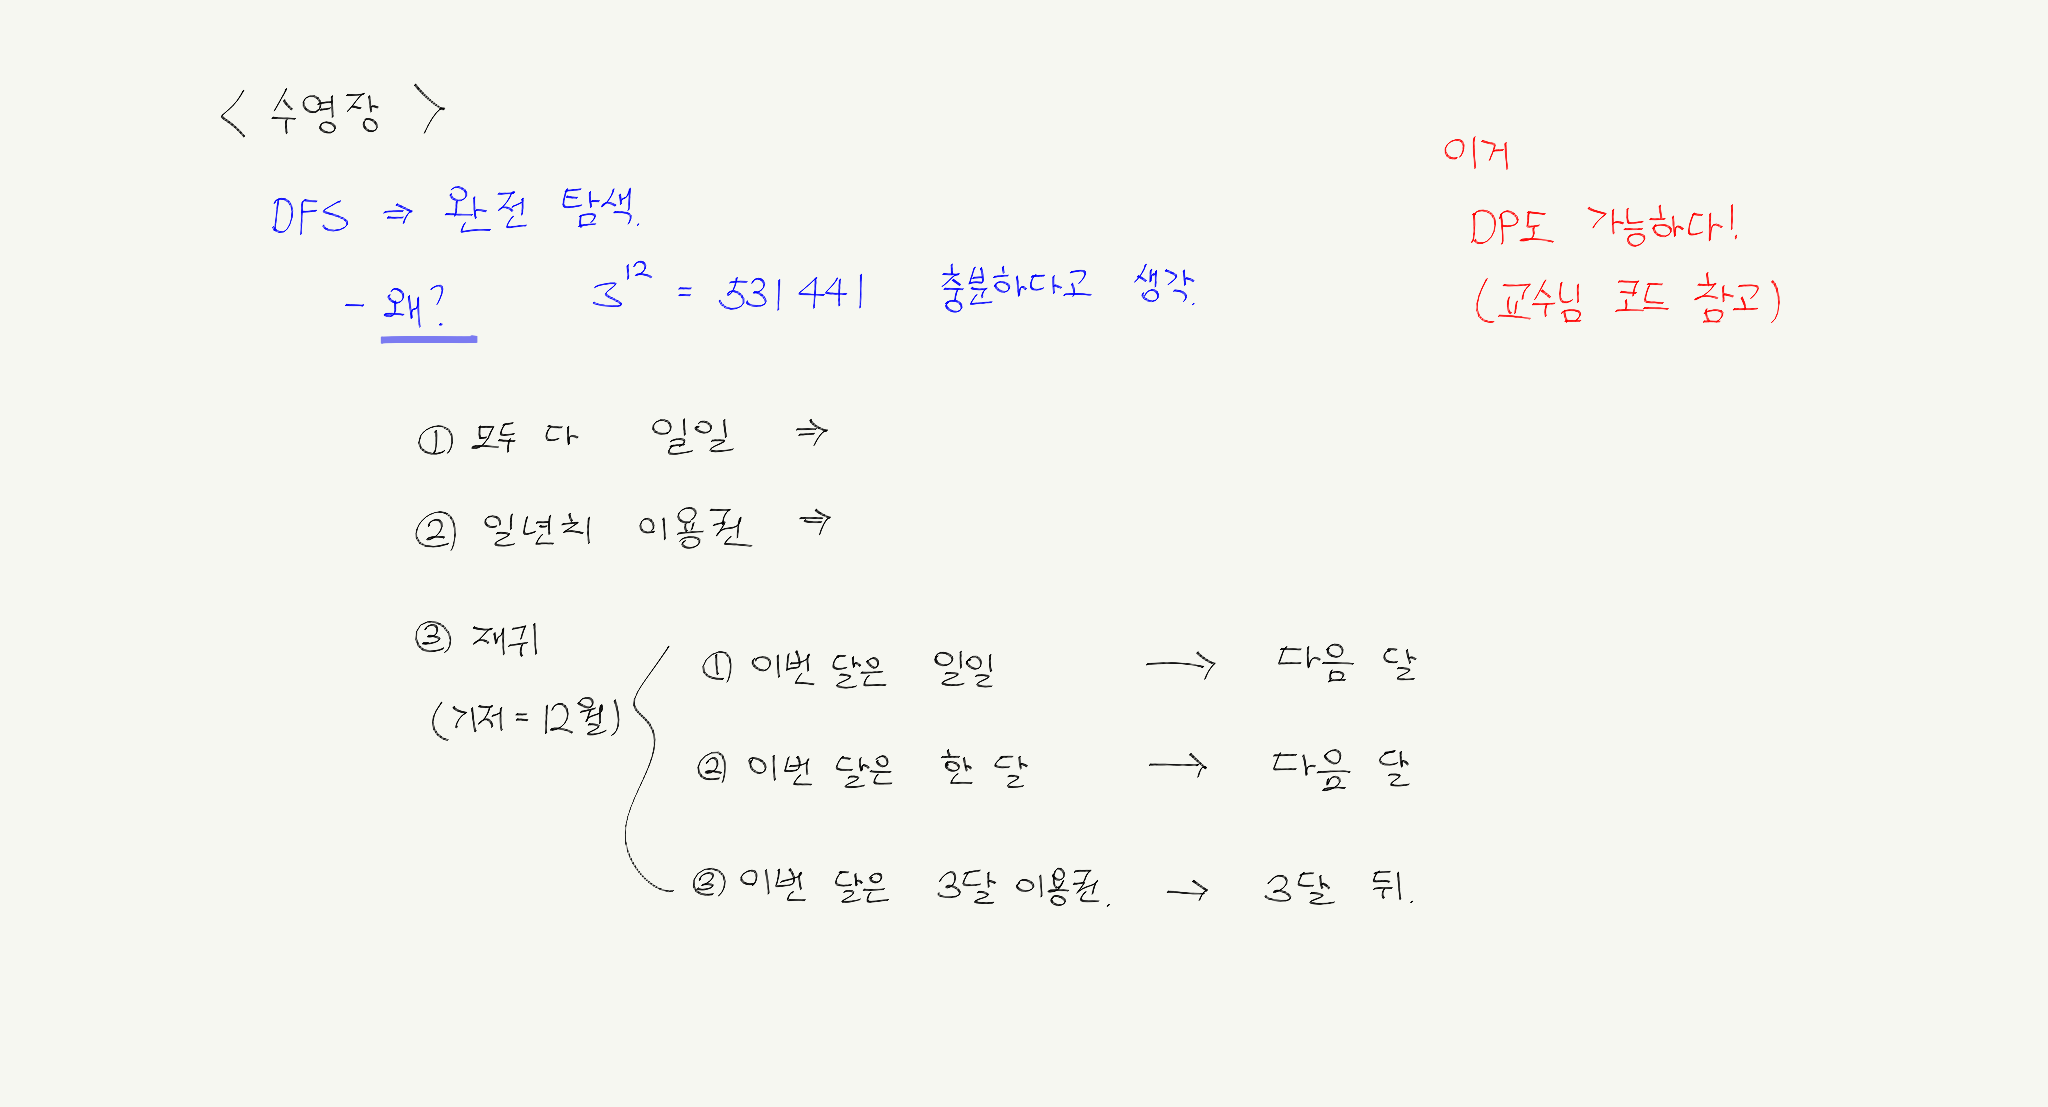 < 수영장 >
DFS ⇒ 완전 탐색.
- 왜? 3^12 = 531441 충분하다고 생각.
이거
DP도 가능하다!
(교수님 코드 참고)
① 모두 다 일일 ⇒
② 일년치 이용권 ⇒
③ 재귀
(기저 = 12월)
① 이번 달은 일일 → 다음 달
② 이번 달은 한 달 → 다음 달
③ 이번 달은 3달 이용권. → 3달 뒤.